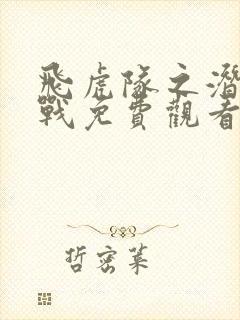 飛虎隊之潛
戰免費觀看
哲密葉